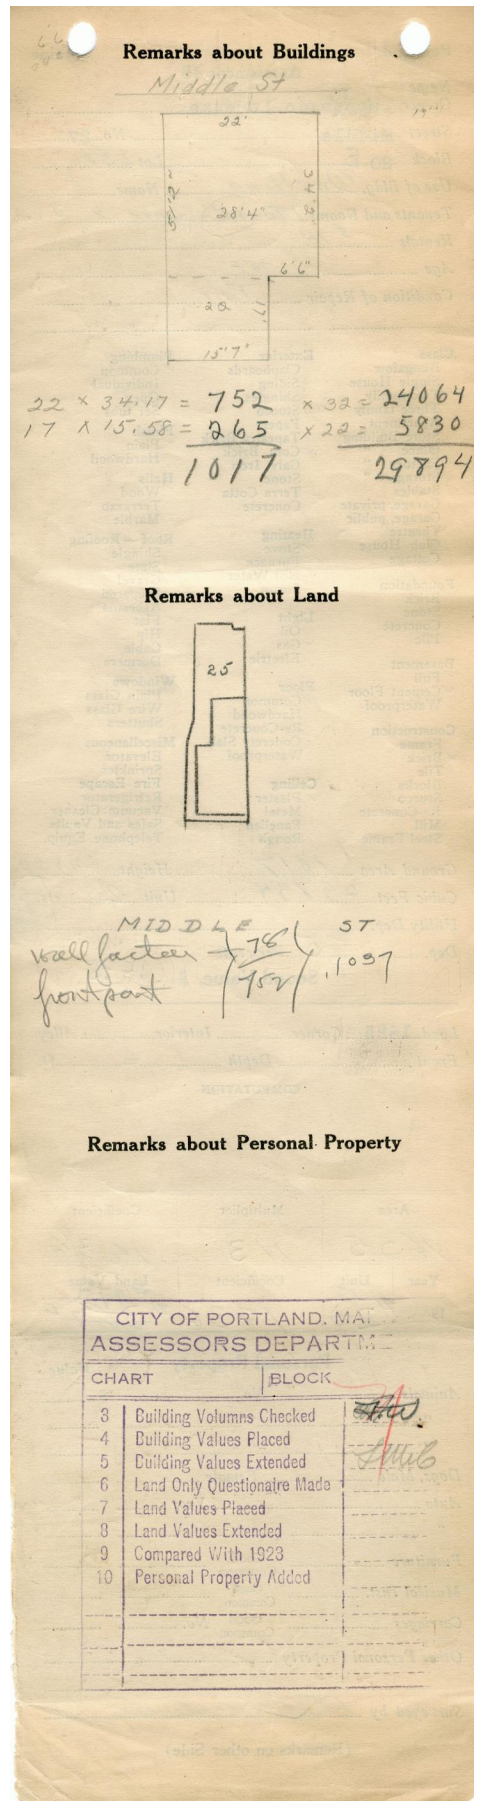 Remarks about Buildings
Middle St
22'
28'4"
6'6"
20
17'
15'7"
22 x 34.17 = 752 x 32 = 24064
17 x 15.58 = 265 x 22 = 5830
1017 29894
Remarks about Land
25
MIDDLE ST
wall factor 78/752 .1037
front part
Remarks about Personal Property
CITY OF PORTLAND, MAI
ASSESSORS DEPARTME
CHART BLOCK
3 Building Volumns Checked
4 Building Values Placed
5 Building Values Extended
6 Land Only Questionaire Made
7 Land Values Placed
8 Land Values Extended
9 Compared With 1923
10 Personal Property Added